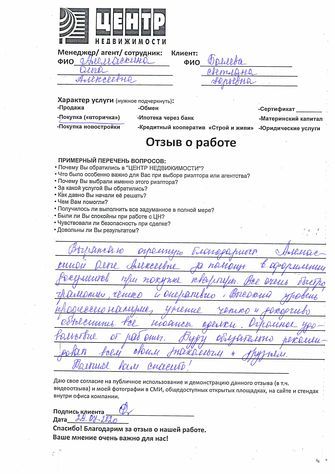 ЦЕНТР
НЕДВИЖИМОСТИ
Менеджер/ агент/ сотрудник: Клиент:
ФИО ФИО
Ольга Светлана
Алексеевна Юрьевна
Характер услуги (нужное подчеркнуть):
-Продажа -Обмен -Сертификат
-Покупка («вторичка») -Ипотека через банк -Материнский капитал
-Покупка новостройки -Кредитный кооператив «Строй и живи» -Юридические услуги
Отзыв о работе
ПРИМЕРНЫЙ ПЕРЕЧЕНЬ ВОПРОСОВ:
• Почему Вы обратились в "ЦЕНТР НЕДВИЖИМОСТИ"?
• Что было особенно важно для Вас при выборе риэлтора или агентства?
• Почему Вы выбрали именно этого риэлтора?
• За какой услугой Вы обратились?
• Как давно Вы начали её решать?
• Чем Вам помогли?
• Получилось ли выполнить все задуманное в полной мере?
• Были ли Вы спокойны при работе с ЦН?
• Чувствовали ли безопасность при сделке?
• Довольны ли Вы результатом?
Выражаю огромную благодарность
Ольге Алексеевне за помощь в оформлении
документов при покупке квартиры. Все очень быстро
грамотно, четко и оперативно. Высокий уровень
профессионализма, умение четко и доходчиво
объяснить все нюансы сделки. Огромное удо-
вольствие от работы. Буду обязательно рекомен-
довать всем своим знакомым и друзьям.
Большое вам спасибо!
Даю свое согласие на публичное использование и демонстрацию данного отзыва (в т.ч.
видеоотзыва) и моей фотографии в СМИ, общедоступных открытых площадках, на сайте и стендах
внутри офиса компании.
Подпись клиента
Дата 28.04.2020
Спасибо! Благодарим за отзыв о нашей работе.
Ваше мнение очень важно для нас!